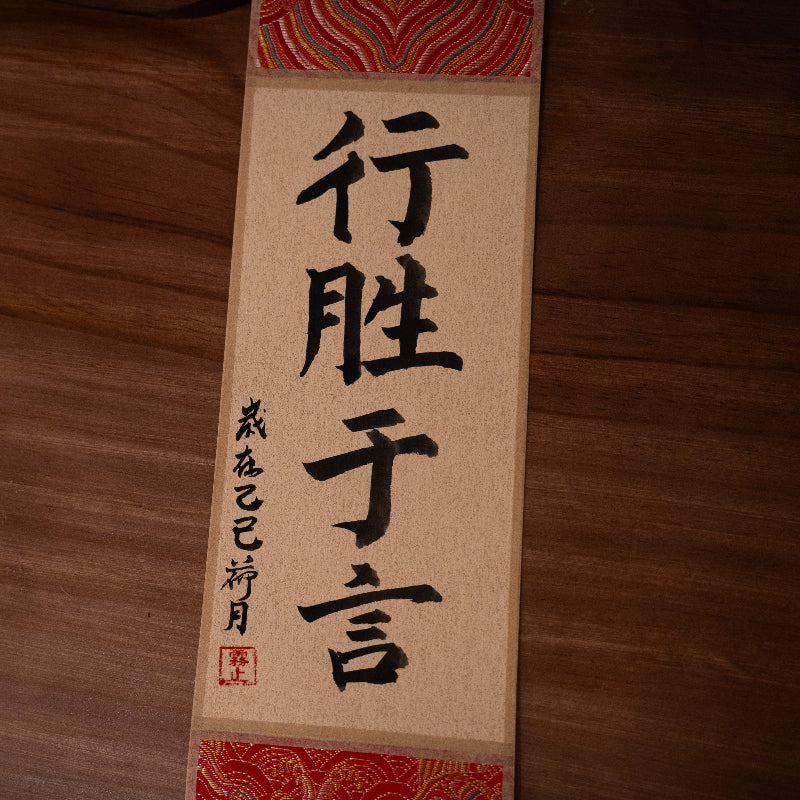 行胜于言
歳在乙巳荷月
霧止